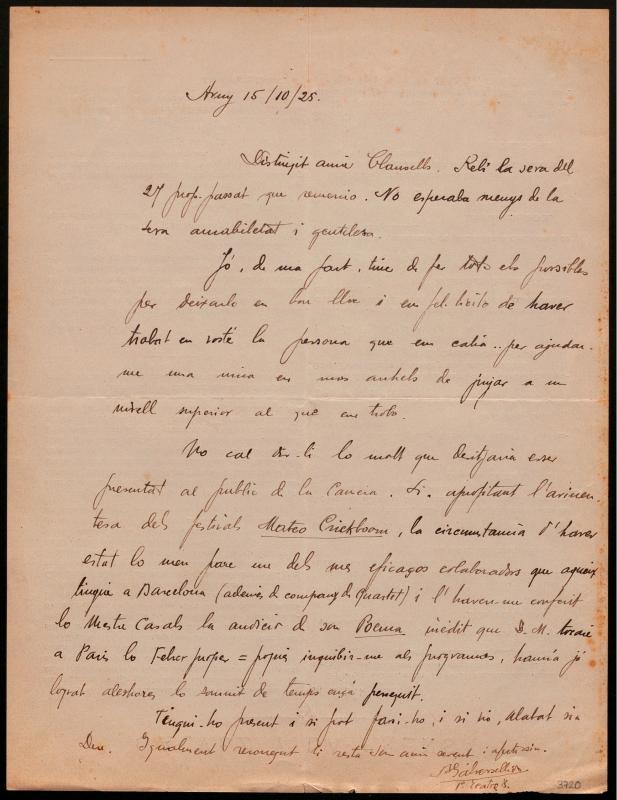 Areny 15/10/25.
Distingit amic Clausells. Rebí la seva del
27 prop-passat que remercio. No esperaba menys de la
seva amabilitat i gentilesa.
Jó, de ma part, tinc de fer tots els possibles
per deixarlo en bon lloc i em felicito de haver
trobat en vosté la persona que em calía.. per ajudar-
me una mica en mos anhels de pujar a un
nivell superior al que em trobo.
No cal dir-li lo molt que desitjaria esser
presentat al public de la Camera. Si, aprofitant l'avinen-
tesa dels festivals Mateo Crickboom, la circumstancia d'haver
estat lo meu pare un dels mes eficaços colaboradors que aqueix
tingué a Barcelona (ademés de company de Quartet) i l'haver-me conferit
lo Mestre Casals la audició de son Poema inédit que D. M. tocaré
a Paris lo Febrer proper = pogués inquibir-me als programes, hauría jó
lograt aleshores lo somnit de temps ençá perseguit.
Tingui-ho present i si pot fassi-ho, i si nó, alabat sia
Deu. Igualment reconegut li resta son amic servent i afectíssim.
3720